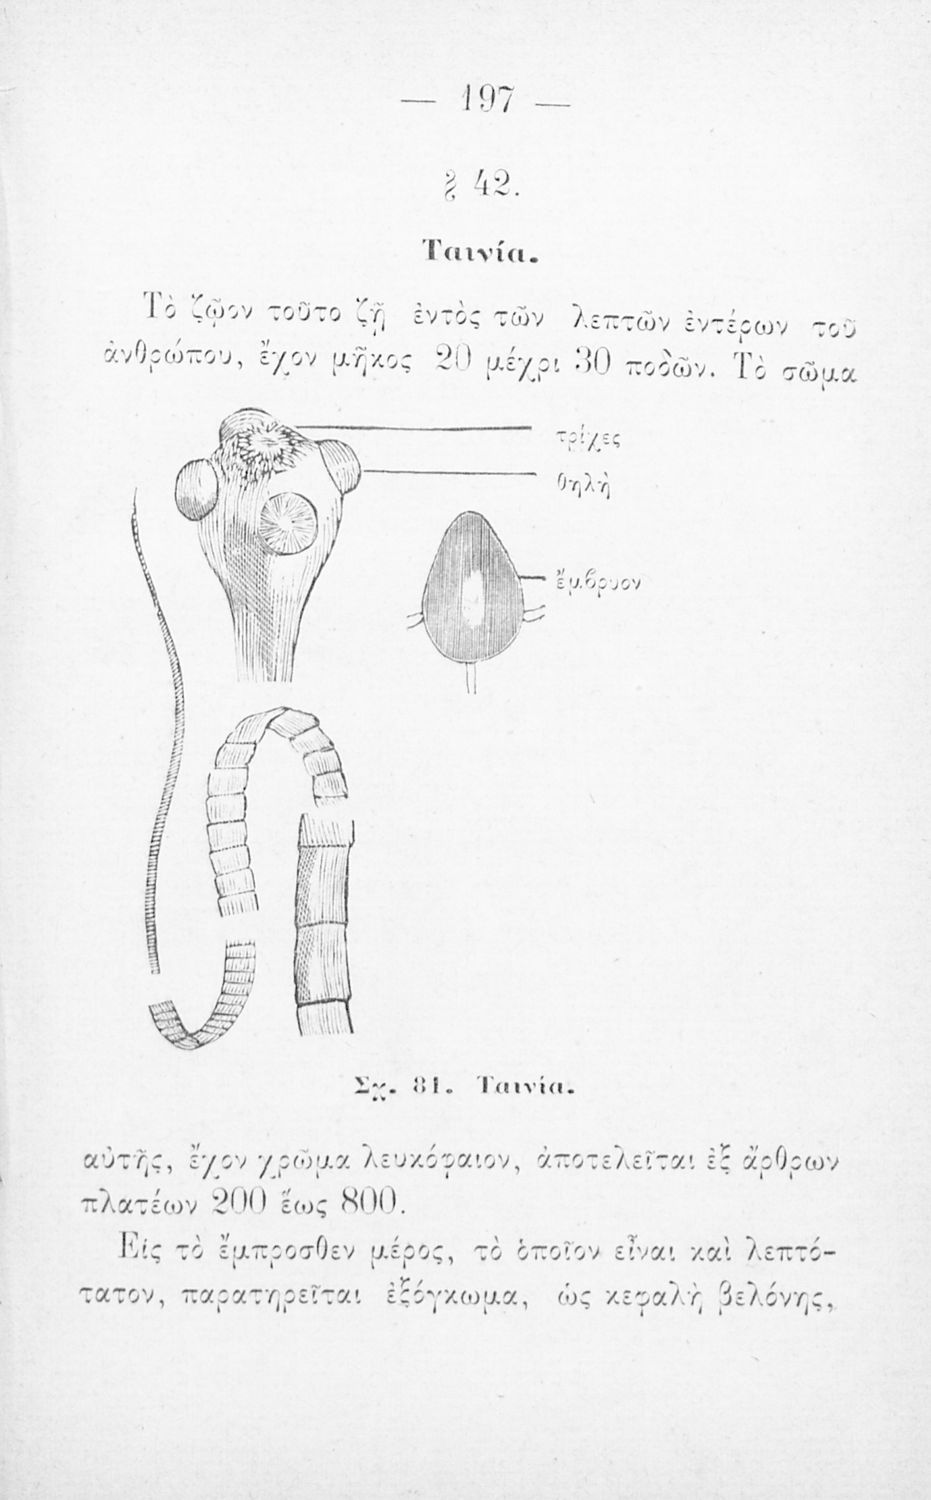 — 197 —
§ 42.
Ταινία.
Τὸ ζῷον τοῦτο ζῇ ἐντὸς τῶν λεπτῶν ἐντέρων τοῦ
ἀνθρώπου, ἔχον μῆκος 20 μέχρι 30 ποδῶν. Τὸ σῶμα
τρίχες
θηλὴ
ἔμβρυον
Σχ. 81. Ταινία.
αὐτῆς, ἔχον χρῶμα λευκόφαιον, ἀποτελεῖται ἐξ ἄρθρων
πλατέων 200 ἕως 800.
Εἰς τὸ ἔμπροσθεν μέρος, τὸ ὁποῖον εἶναι καὶ λεπτό-
τατον, παρατηρεῖται ἐξόγκωμα, ὡς κεφαλὴ βελόνης,